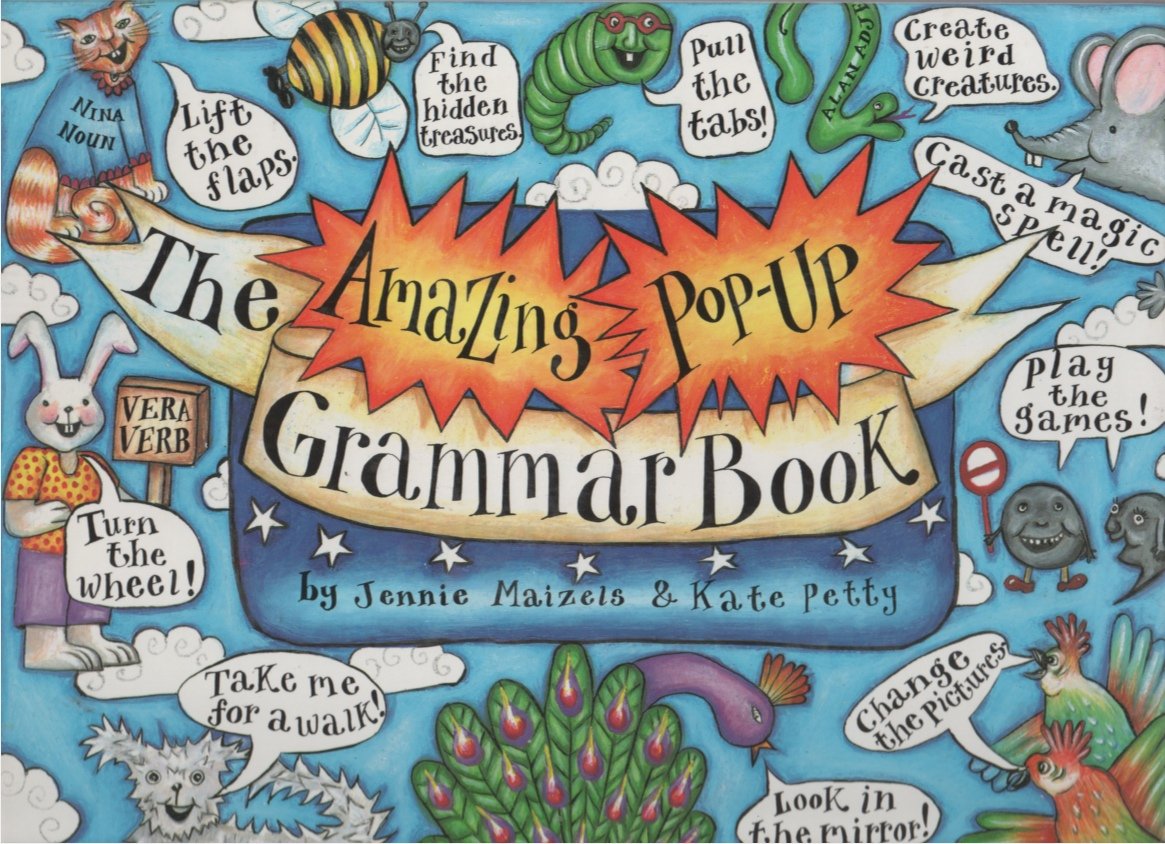 NINA
NOUN
Lift
the
flaps.
Find
the
hidden
treasures.
Pull
the
tabs!
ALAN ADJ
Create
weird
creatures.
Cast a magic
spell!
The Amazing Pop-Up
Grammar Book
by Jennie Maizels & Kate Petty
VERA
VERB
Turn
the
wheel!
play
the
games!
Take me
for a walk!
Change
the pictures.
Look in
the mirror!